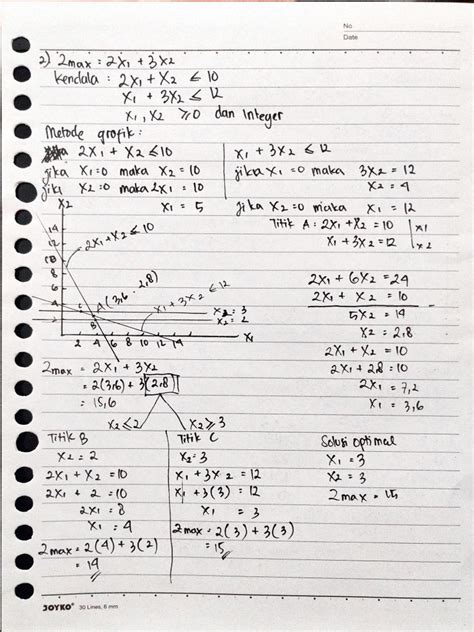 No
Date
2) Zmax = 2x1 + 3x2
Kendala : 2x1 + x2 ≤ 10
x1 + 3x2 ≤ 12
x1, x2 ≥ 0 dan Integer
Metode grafik :
2x1 + x2 ≤ 10
jika x1=0 maka x2 = 10
jika x2=0 maka 2x1 = 10
x1 = 5
x1 + 3x2 ≤ 12
jika x1=0 maka 3x2 = 12
x2 = 4
jika x2=0 maka x1 = 12
Titik A : 2x1 + x2 = 10 | x1
x1 + 3x2 = 12 | x2
2x1 + 6x2 = 24
2x1 + x2 = 10
5x2 = 14
x2 = 2,8
2x1 + x2 = 10
2x1 + 2,8 = 10
2x1 = 7,2
x1 = 3,6
x2
14
12
10
8
4
2
2x1 + x2 ≤ 10
A (3,6 . 2,8)
C
B
x1 + 3x2 ≤ 12
x2 = 3
x2 = 2
2 4 6 8 10 12 14
x1
Zmax = 2x1 + 3x2
= 2(3,6) + 3(2,8)
= 15,6
x2 ≤ 2
x2 ≥ 3
Titik B
x2 = 2
2x1 + x2 = 10
2x1 + 2 = 10
2x1 = 8
x1 = 4
Zmax = 2(4) + 3(2)
= 14
Titik C
x2 = 3
x1 + 3x2 = 12
x1 + 3(3) = 12
x1 = 3
Zmax = 2(3) + 3(3)
= 15
Solusi optimal
x1 = 3
x2 = 3
Zmax = 15
JOYKO® 30 Lines, 8 mm